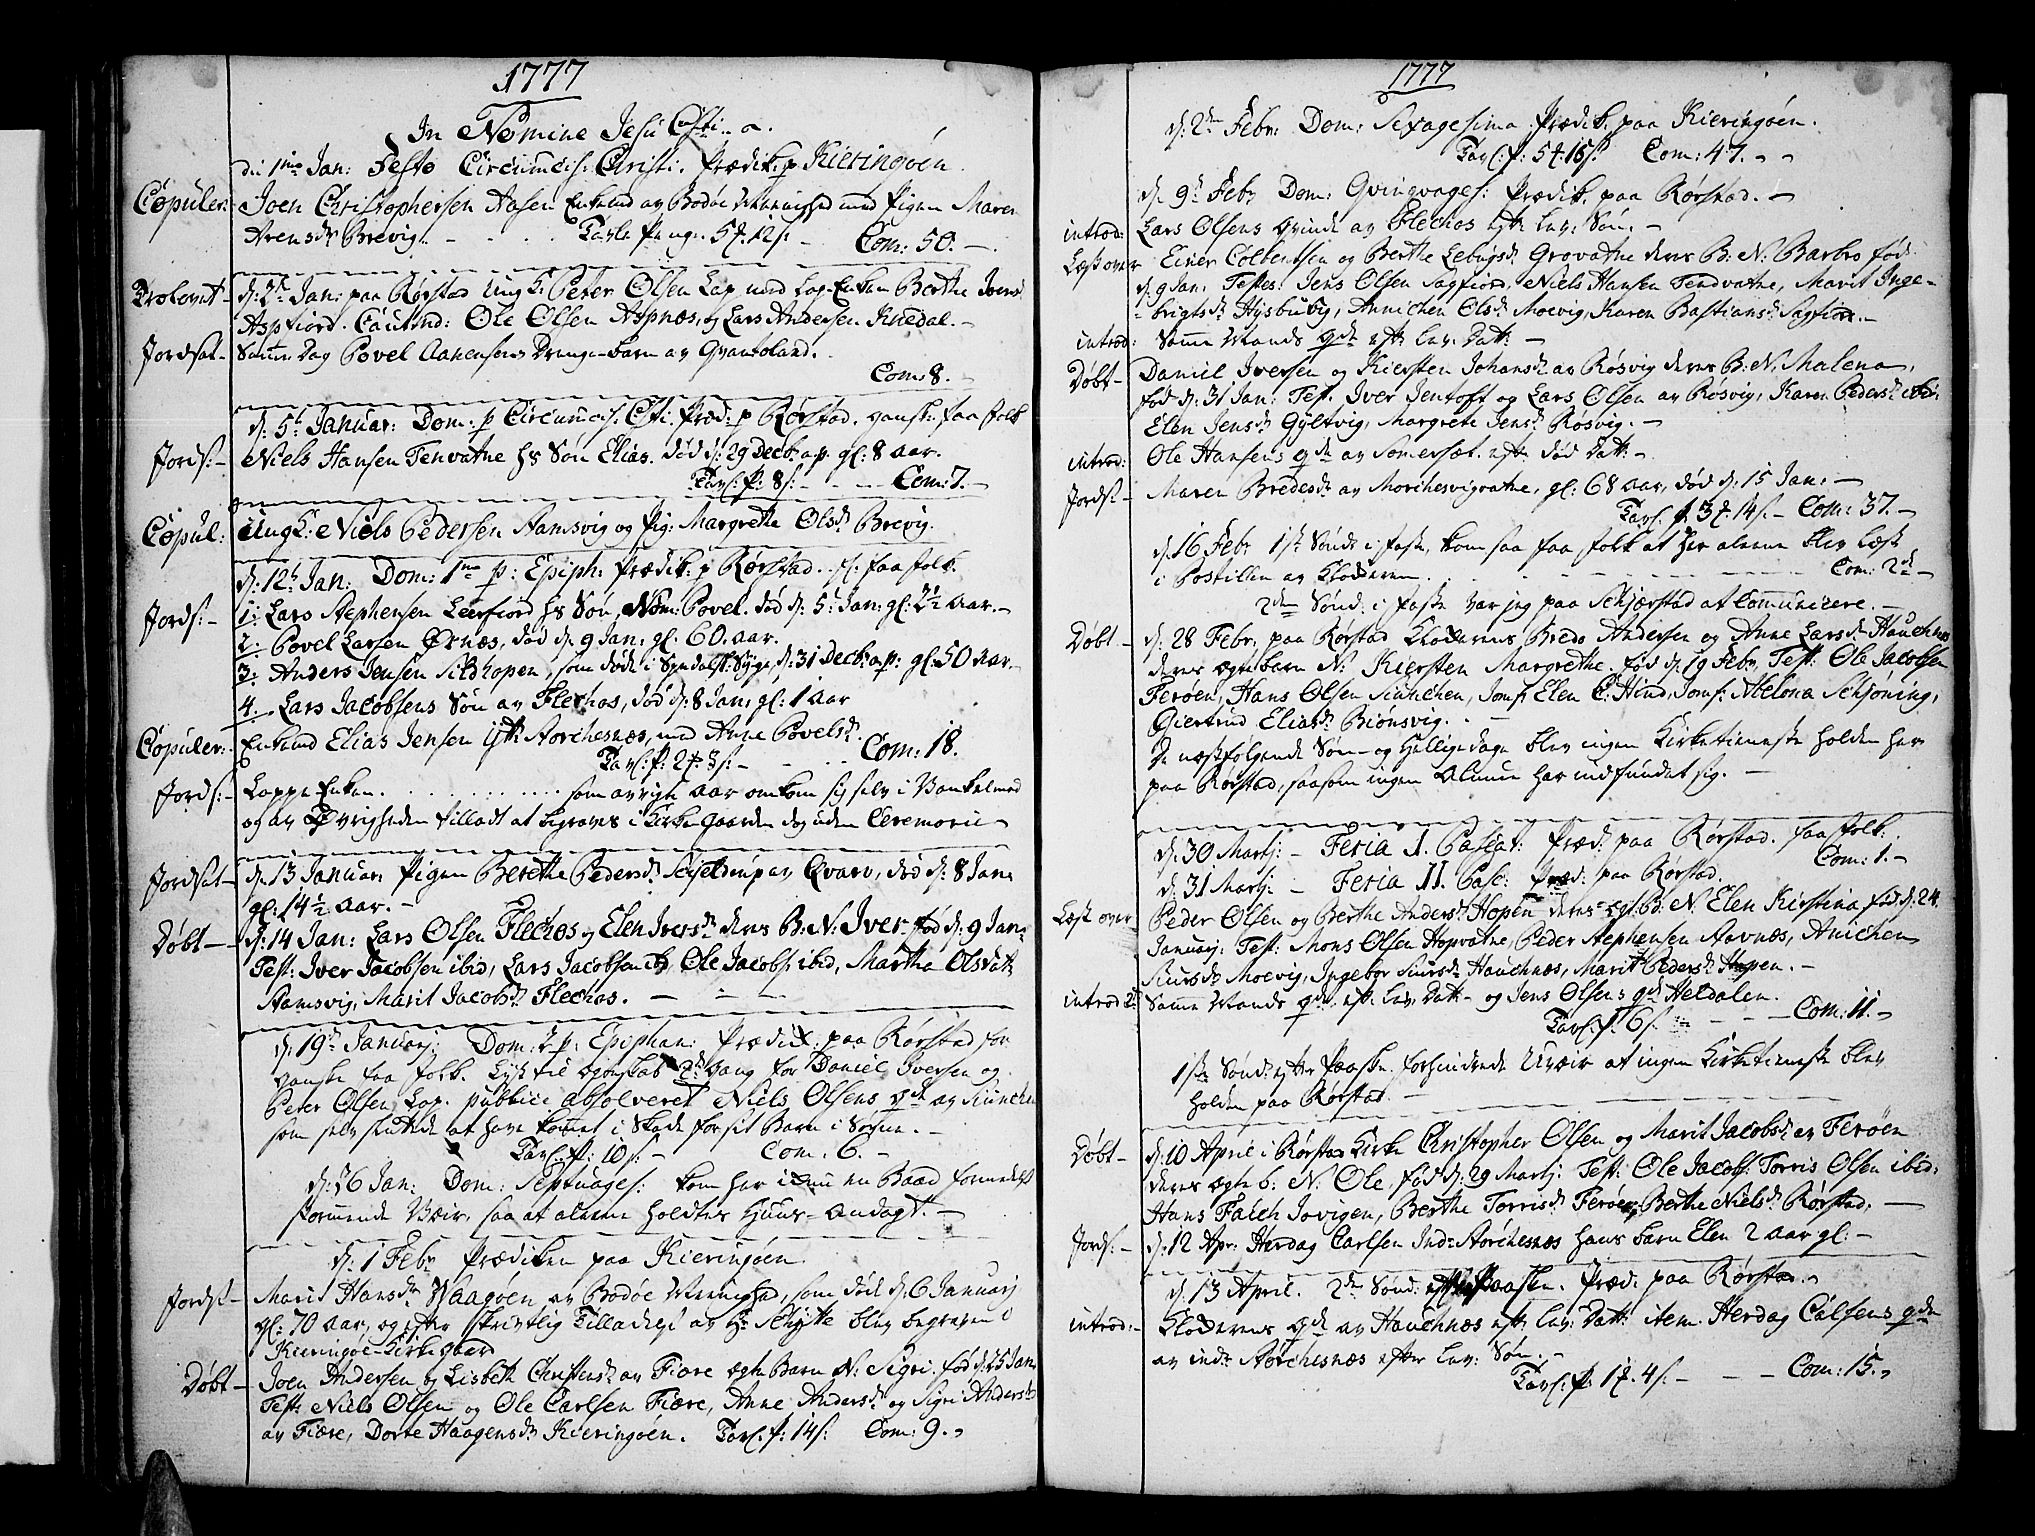 1777
In Nomine Jesu Csti
die 1mo Jan: Festo Circumcis: Christi. Prædik: p Kieringøen.
Copuler: Joen Christophersen Aasen Enkemd av Bodøe Menighed med Pigen Maren
Arensdr Brevig. Tavle Peng: 5 12 s: Com: 50.
Trolovet d: 2d Jan: paa Rørstad Ungk: Peter Olsen Lap med Lap-Enken Berthe Iversd
Aspfiord. Cautind: Ole Olsen Aspnæs, og Lars Andersen Knedal.
Jordsat Samme Dag Povel Aanensens Drenge-barn av Qvantoland.
Com: 8.
d: 5t Januar: Dom: p Circumcis: Csti: Præd: p Rørstad. ganske faa folk
Jords: Niels Hansen Tenvatne hs Søn Elias. død d: 29 Decb: a.p. gl: 8 aar.
Tavl: P: 8 s: Com: 7.
Copul: Ungk: Niels Pedersen Aamsvig og Pig: Margrethe Olsd Brevig.
d: 12t Jan: Dom: 1ma p: Epiph: Prædik: p Rørstad. faa folk.
Jords: 1: Lars Stephensen Leerfiord hs Søn, Nom: Povel. død d: 5t Jan: gl: 2½ aar.
2. Povel Larsen Ørnæs, død d: 9 Jan: gl. 60. aar.
3: Anders Jensen Sildhopen, som døde i Syndalsk: Syge, d: 31 Decb: a.p: gl: 50 aar.
4. Lars Jacobsens Søn av Flechos, død d: 8 Jan: gl: 1 aar
Copuler: Enkemd Elias Jensen Ytr Storchesnæs, med Anne Povelsd
Tavl: P: 2 3 s: Com: 18.
Jords: Lappe Enken . . . . . . som avrigte Aar omkom sig selv i Vankelmod
og av Øvrigheden tilladt at begraves i Kirke Gaarden dog uden Ceremonie
Jordsat d: 13 Januar: Pigen Berethe Pedersd Seiseldrup av Qvarv, død d: 8 Jan:
gl: 14½ aar.
Døbt d: 14 Jan: Lars Olsen Flechos og Elen Iversd deres B: N: Iver. fød d: 9 Jan:
Test: Iver Jacobsen ibid, Lars Jacobsen ib, Ole Jacobs: ibid, Martha Olsdatr
Aamsvig, Marit Jacobsd Flechos.
d: 19d Januarj: Dom: 2 p: Epiphan: Prædik: paa Rørstad for
ganske faa folk. Lyst til Egteskab 2d Gang for Daniel Iversen og
Peter Olsen Lap. publice absolveret Niels Olsens qde av
som selv havde at have kommet i Skade for sit Barn i Søvne.
Tavl: P: 10 s: Com: 6.
d: 26 Jan: Dom: Septuages: kom her en Baad formedelst
stormende Væir, saa at aleene holdtes Huus-andagt.
d: 1 Febr Prædiken paa Kieringøen
Jords: Marit Hansdr Waagøen av Bodøe Menighed, som døde d: 6 Januarj
gl: 70 aar, og efter skrivtlig Tilladelse av Hr Schytte blev begraven i
Kieringøe Kirkegaard
Døbt Joen Andersen og Lisbeth Christensd av Fiære Egte Barn N: Sigri. fød d: 25 Jan.
Test: Niels Olsen og Ole Carlsen Fiære, Anne Andersd og Sigri Andersd
av Fiære, Dorte Haagensd Kieringøen. Tavl: P: 14 s: Com: 9.
1777
d: 2den Febr: Dom: Sexagesima Prædik. paa Kieringøen.
Tavl: P: 5 16 s: Com: 47.
d: 9d Febr Dom: Qvinqvages: Prædik. paa Rørstad.
introd: Lars Olsens qvinde av Flechos eftr lev: Søn.
Læst over Einer Colbentsen og Berthe Grovatne deres B: N: Barbro fød
d: 9 Jan: Testes: Jens Olsen Sagfiord, Niels Hansen Tendvatne, Marit Inge-
brigtsd Hysbuvig, Annichen Olsd Moevig, Karen Bastiansd Sagfiord.
introd: Samme Mands qde eftr lev: Datt:
Døbt Daniel Iversen og Kiersten Johansd av Røsvig deres B: N: Malena,
fød d: 31 Jan: Test. Iver Jentoft og Lars Olsen av Røsvig, Karen Pedersd ibid:
Elen Jensd Gyltvig, Margrete Jensd Røsvig.
introd: Ole Hansens qde av Somerset. eftr død Datt:
Jords: Maren Bredesd av Morchesvigvatne, gl: 68 aar, død d: 15 Jan:
Tavl: P: 3 14 s: Com: 37.
d: 16 Febr 1st Sønd: i faste, kom saa faa folk at her alleene blev læst
i Postillen av Klokkeren . . . Com: 2.
2den Sønd: i faste var jeg paa Schjærstad at Communicere.
Døbt d: 28 Febr: paa Rørstad Klokkerens Bredo Andersen og Anne Larsd Hauchnæs
deres ægte barn N: Kiersten Margrethe. fød d: 19 Febr. Test: Ole Jacobsen
Ferøen, Hans Olsen, Jomf: Elen C: Hind, Jomf: Abelona Schjøning,
Giertrud Eliasd Biønsvig.
De næstfølgende Søn- og Hellige dage blev ingen Kirketieneste holden her
paa Rørstad, saasom ingen Almue har indfundet sig.
d: 30 Martj: Feria I. Paschat: Præd: paa Rørstad. faa folk.
Com: 1.
d: 31 Martj: Feria II. Pasc: Præd: paa Rørstad.
Læst over Peder Olsen og Berthe Andersd Hopen deres egt: B: N: Elen Kirstina fød d: 24
Januarj: Test: Mons Olsen Hopvatne, Peder Stephensen Stavnæs, Anichen
Siursd Moevig, Ingebor Siursd Hauchnæs, Marit Pedersd Hopen.
introd 2: Samme Mands qde eftr lev: Datt: og Jens Olsens qde Heldalen.
Tavl: P: 6 s: Com: 11.
1ste Sønd: efter Paaske forhindrede Uveir at ingen Kirketieneste blev
holden paa Rørstad.
Døbt d: 10 April i Rørstad Kirke Christopher Olsen og Marit Jacobsd av Ferøen
deres ægte b: N: Ole, fød d: 29 Martj. Test: Ole Jacobs: Torris Olsen ibid:
Hans Falch Jovigen, Berthe Torrisd Ferøen, Berthe Nielsd Rørstad.
Jords: d: 12 Apr: Herdag Carlsen Indr Storchesnæs hans barn Elen 2 aar gl:
d: 13 April. 2den Sønd: efter Paaske. Præd: paa Rørstad.
introd: Klokkerens qde av Hauchnæs eftr lev: Datt: item Herdag Calsens qde
av indr Storchesnæs efter lev: Søn.
Tavl: P: 1 4 s: Com: 15.